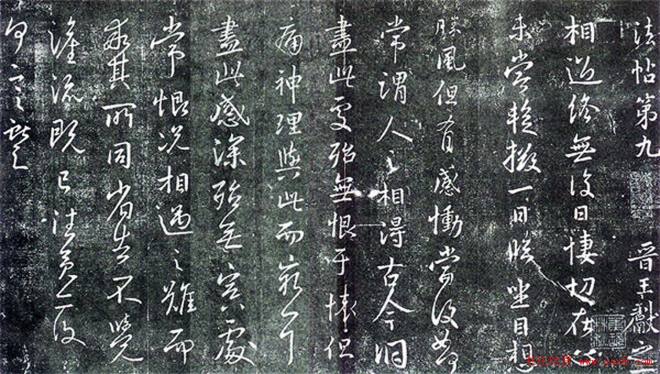 法帖第九 晉王獻之
相過終無復日悽切在心
未嘗暫掇一日臨坐目想
勝風但有感慟當復如何
常謂人之相得古今洞
盡此處殆無恨于懷但
痛神理與此而窮耳
盡此感深殆無冥處
常恨況相遇之難而
乖其所同省告不覺
灑流既已往矣亦復
何言獻之